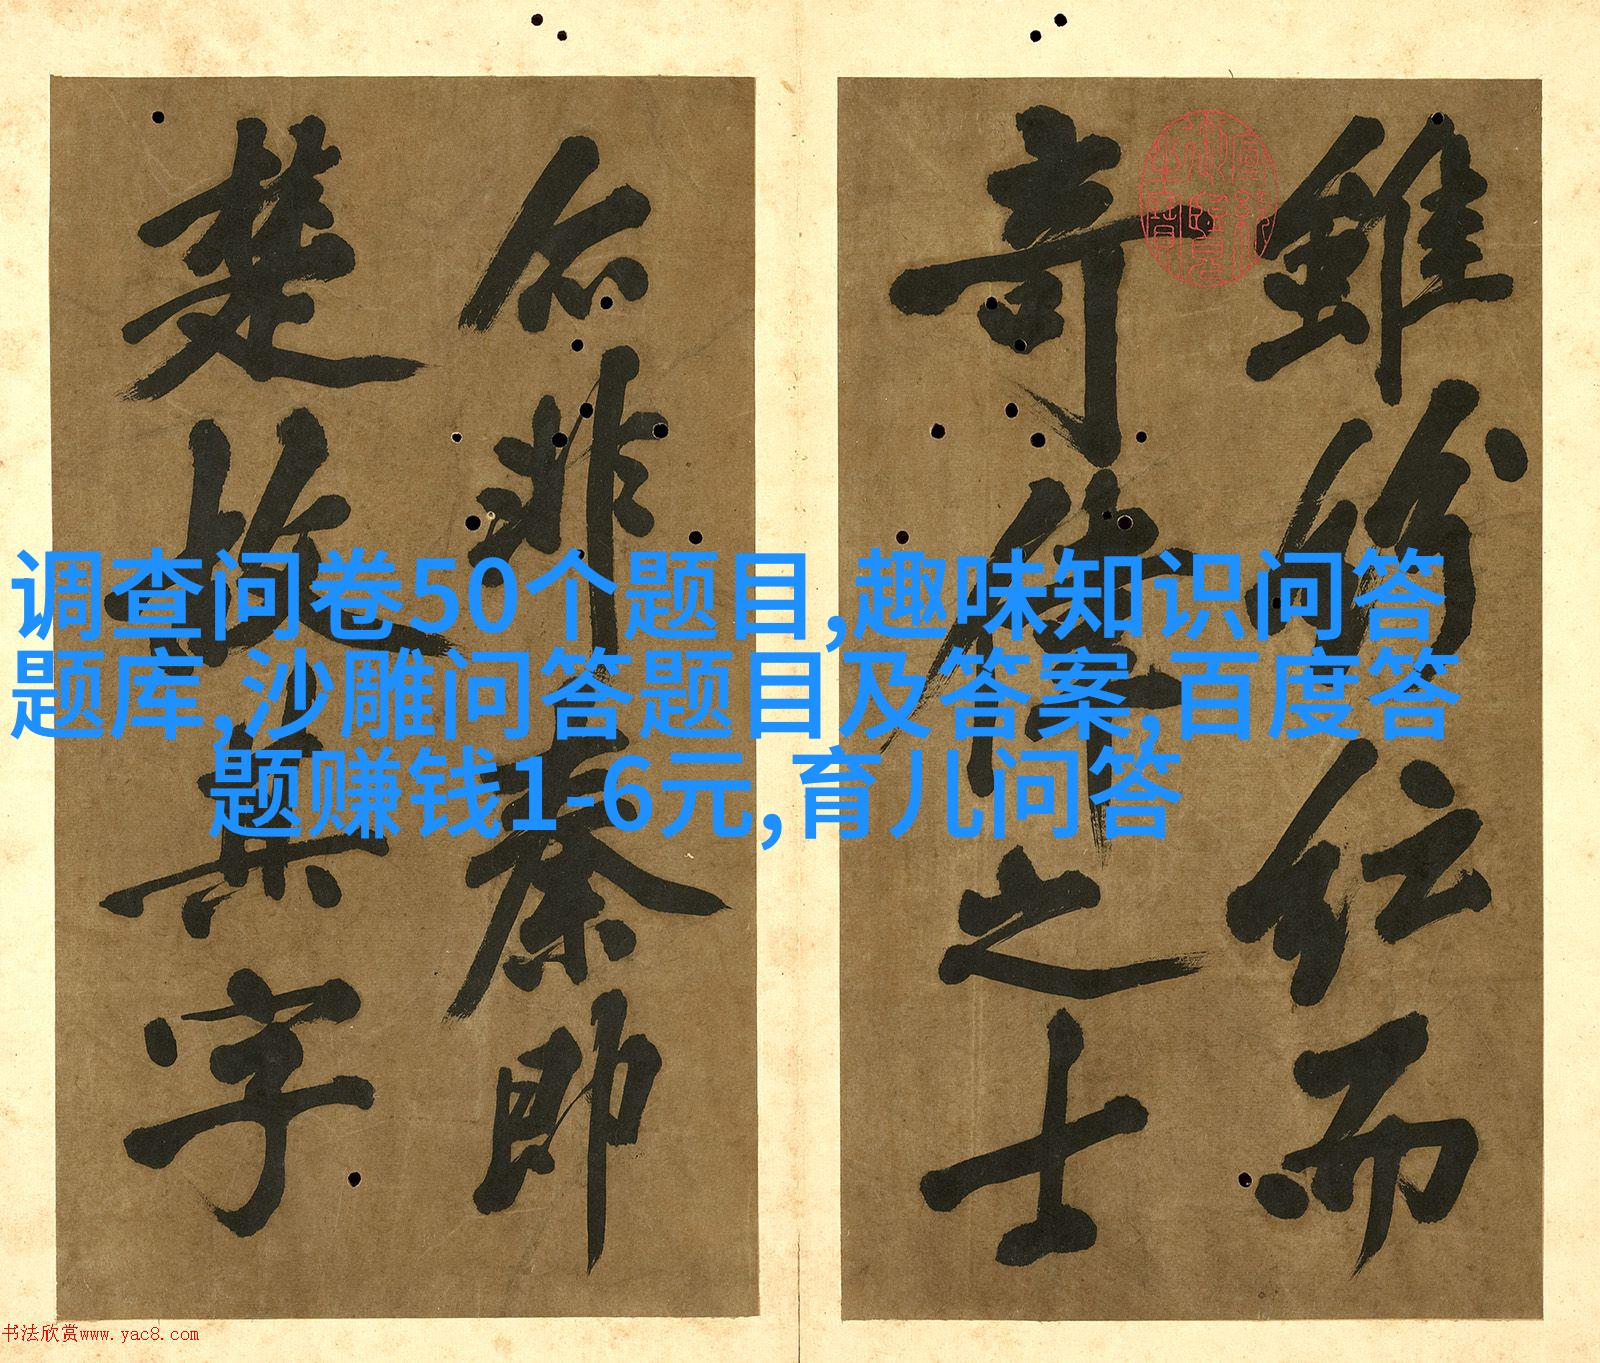 雖紛紜而
奇偉之士
名非秦即
楚故其字
调查问卷50个题目,趣味知识问答
题库,沙雕问答题目及答案,百度答
题赚钱1-6元,育儿问答
书法欣赏www.yac8.com